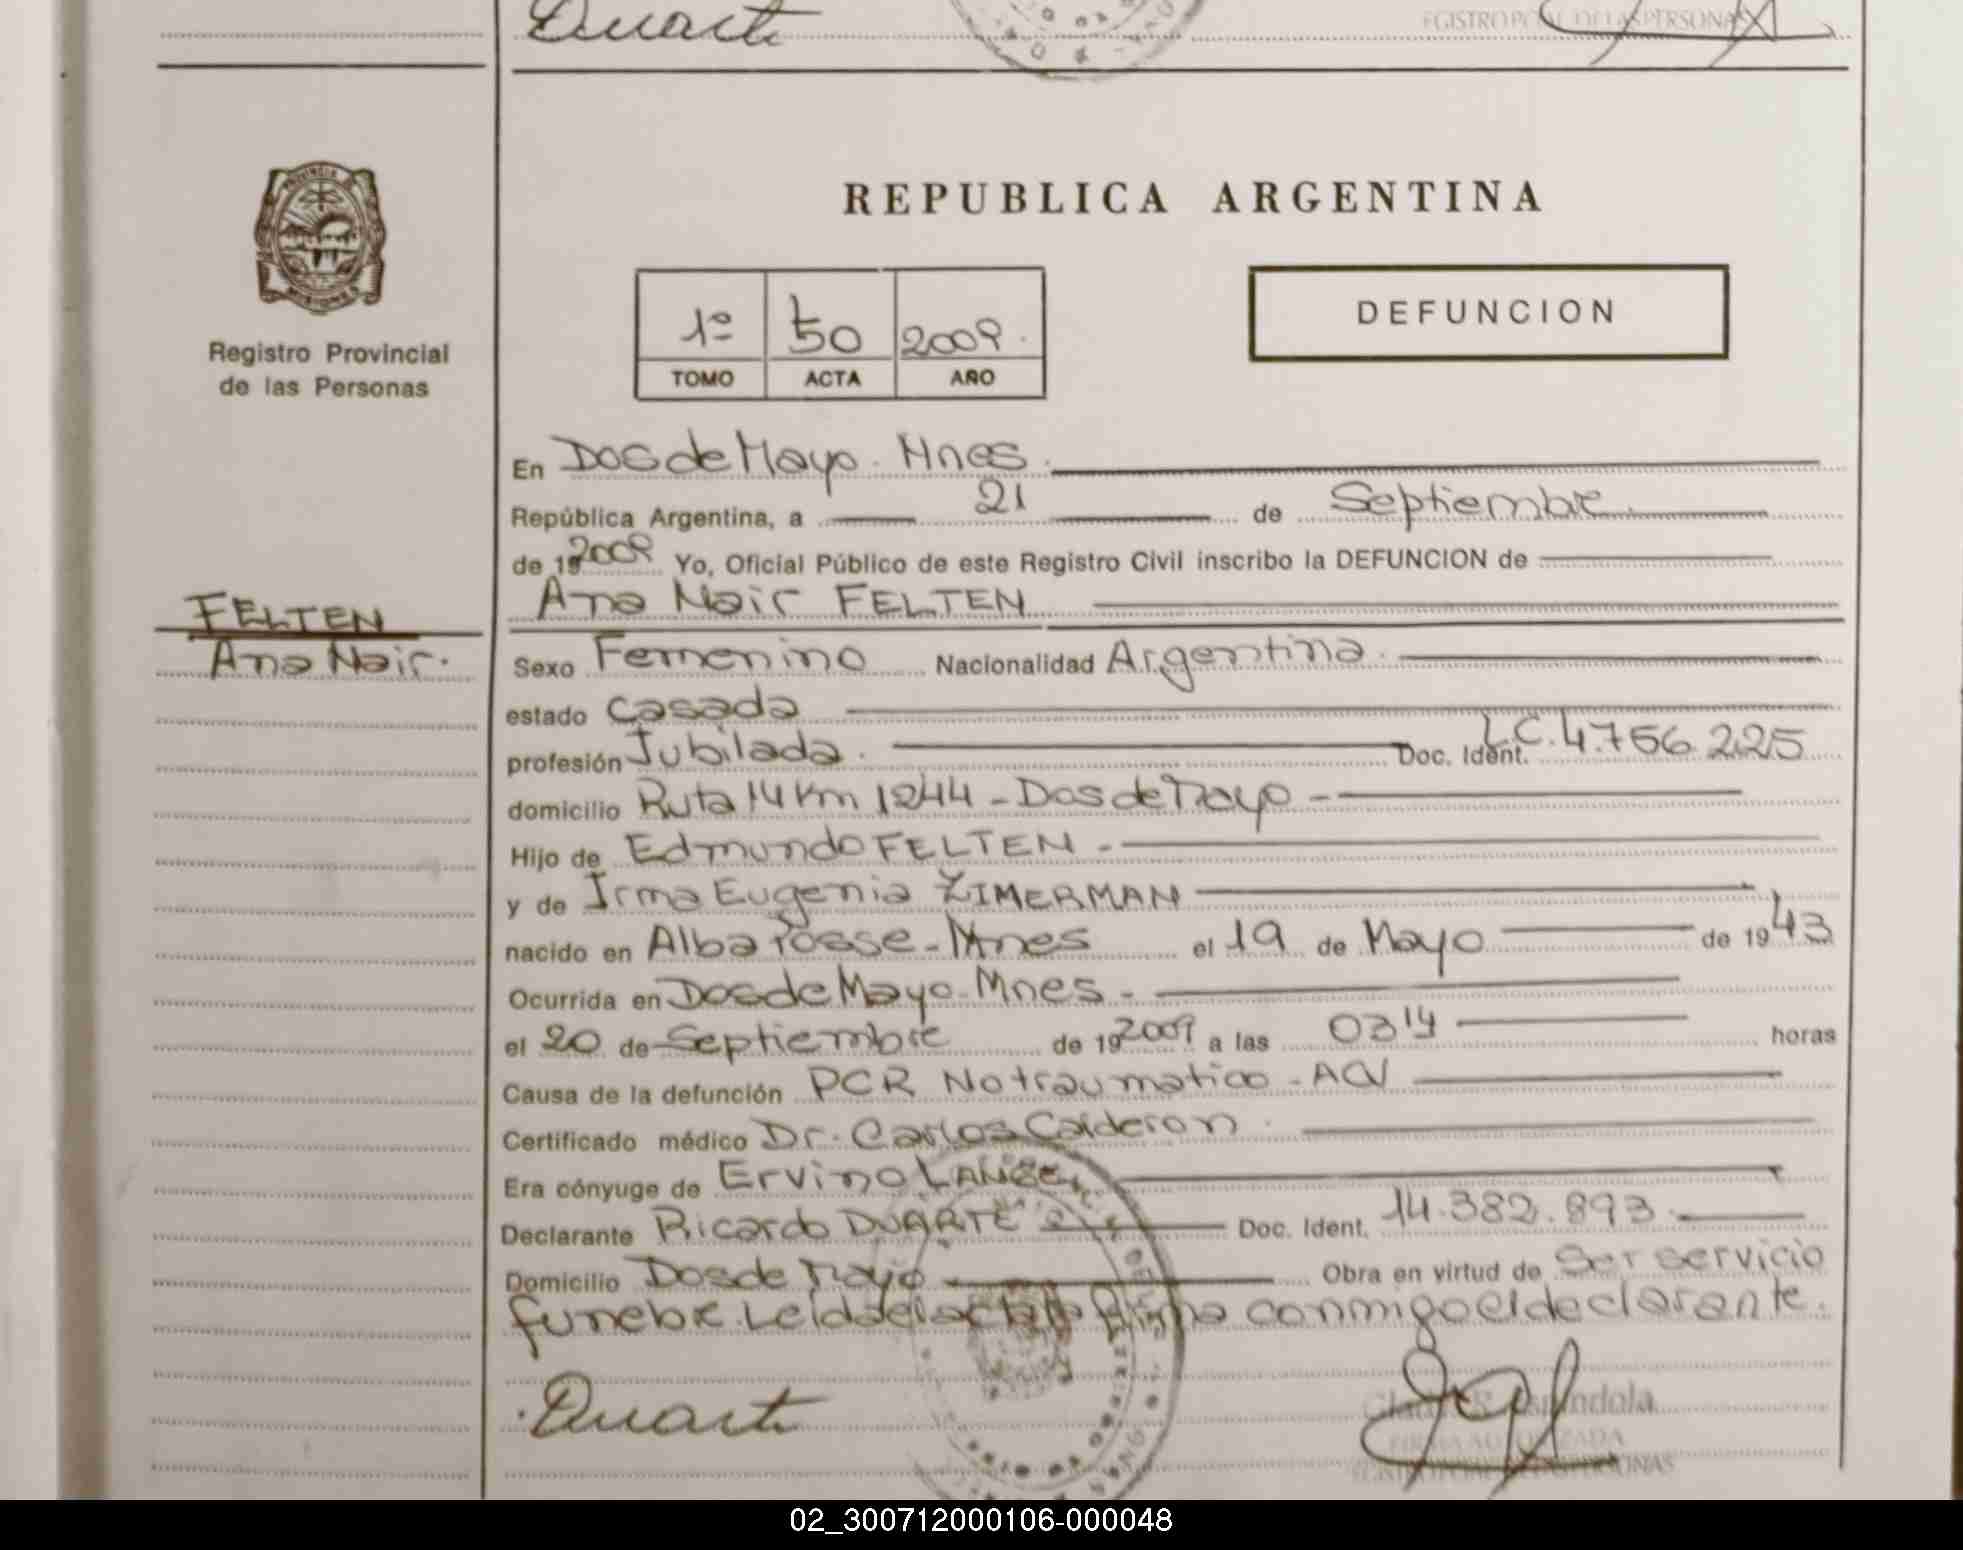 Duarte
EGISTRO PCIAL. DE LAS PERSONAS
PROVINCIA DE
MISIONES
Registro Provincial
de las Personas
REPUBLICA ARGENTINA
1º 50 2009.
TOMO ACTA AÑO
DEFUNCION
En Dos de Mayo. Mnes.
República Argentina, a 21 de Septiembre.
de 19 2009 Yo, Oficial Público de este Registro Civil inscribo la DEFUNCION de
Ana Nair FELTEN
FELTEN
Ana Nair.
Sexo Femenino Nacionalidad Argentina.
estado Casada
profesión Jubilada. Doc. Ident. L.C. 4.756.225
domicilio Ruta 14 Km 1244 - Dos de Mayo -
Hijo de Edmundo FELTEN -
y de Irma Eugenia ZIMERMAN
nacido en Alba Posse - Mnes el 19 de Mayo de 1943
Ocurrida en Dos de Mayo - Mnes -
el 20 de Septiembre de 19 2009 a las 03 14 horas
Causa de la defunción PCR No traumatico - ACV
Certificado médico Dr. Carlos Calderon.
Era cónyuge de Ervino LANGE
Declarante Ricardo DUARTE Doc. Ident. 14.382.893.
Domicilio Dos de Mayo Obra en virtud de Ser servicio
funebre. Leida el acta la firma conmigo el declarante.
Duarte
Gladys Espindola
FIRMA AUTORIZADA
02_300712000106-000048